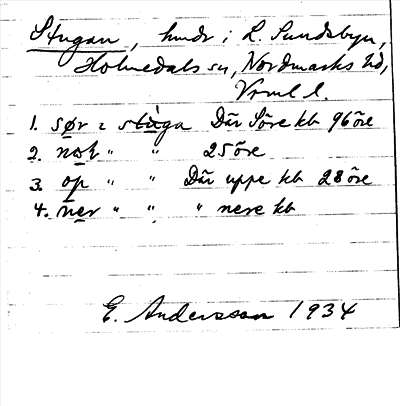 Stugan, hmdr i L. Sundsbyn,
Holmedals sn, Nordmarks hd,
Vrml l.
1. sør i stùga Där Söre kb 96 öre
2. nol " " 25 öre
3. op " " Där uppe kb 28 öre
4. ner " " " nere kb
E. Andersson 1934